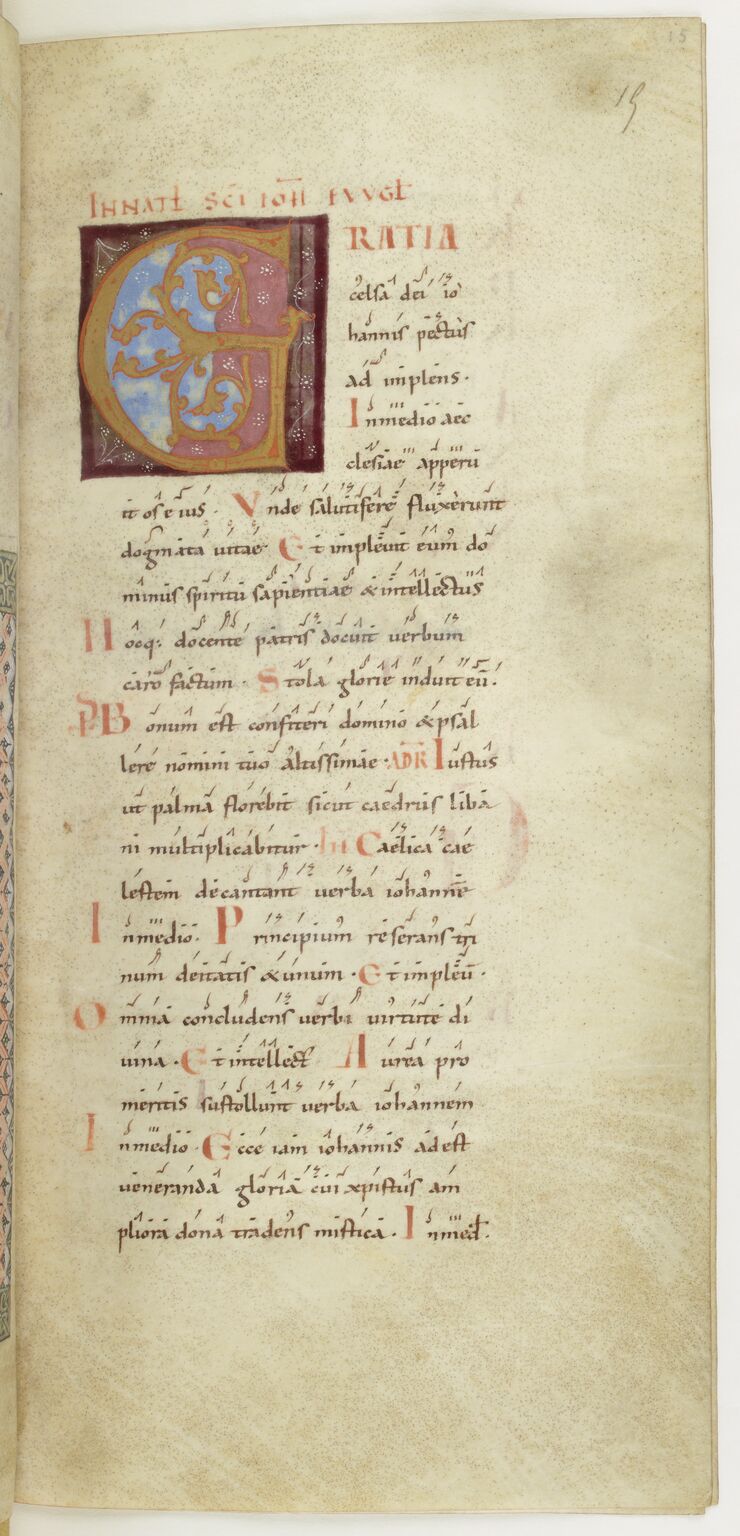 15
15
IN NAT̅L SC̅I IOH̅ EVVGL̅
G RATIA
celsa dei io
hannis pectus
ad implens·
In medio aec
clesiae apperu
it os eius· Unde salutifere fluxerunt
dogmata vitae Et implevit eum do
minus spiritu sapientiae & intellectus
Hocq: docente patris docuit verbum
caro factum· Stola glorie induit eu̅·
PS Bonum est confiteri domino & psal
lere nomini tuo altissimae· ADR Iustus
ut palma florebit sicut caedrus liba
ni multiplicabitur· Caelica cae
lestem decantant verba iohanne̅
In medio· Principium reserans tri
num deitatis & unum· Et impleu̅·
Omnia concludens verbi virtute di
vina· Et intellect Aurea pro
meritis sustollunt verba iohannem
In medio· Ecce iam iohannis adest
veneranda gloria cui xpistus am
pliora dona tradens mistica· In med̅·